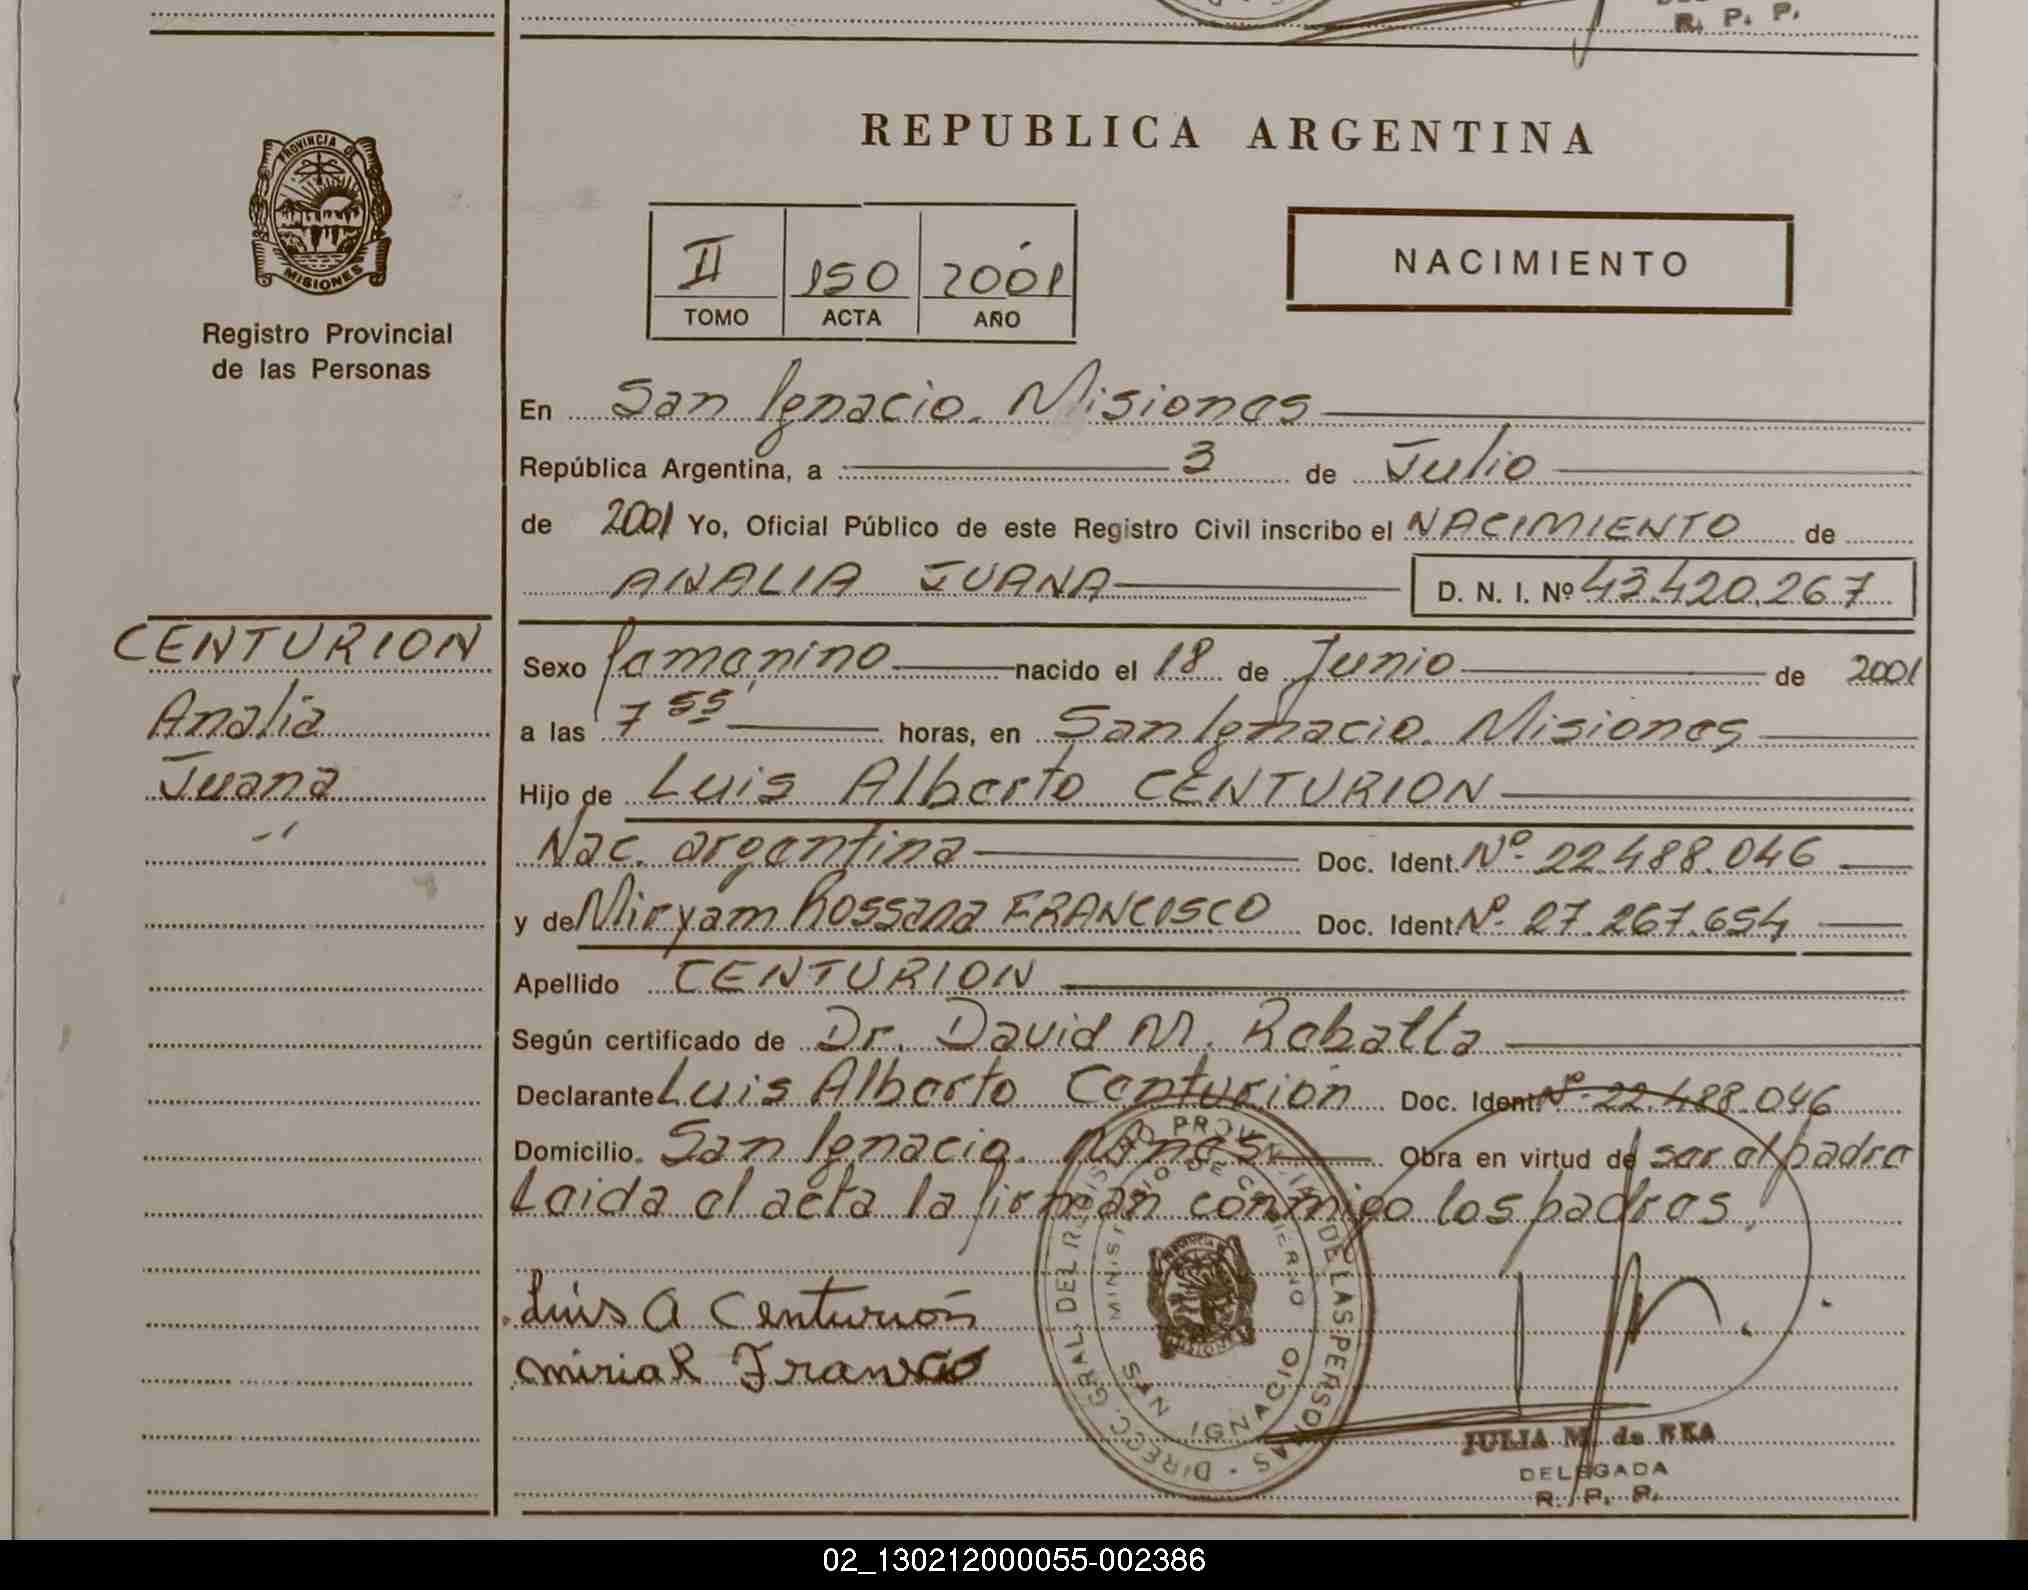 R. P. P.
PROVINCIA DE
MISIONES
Registro Provincial
de las Personas
REPUBLICA ARGENTINA
II 150 2001
TOMO ACTA AÑO
NACIMIENTO
En San Ignacio. Misiones
República Argentina, a 3 de Julio
de 2001 Yo, Oficial Público de este Registro Civil inscribo el NACIMIENTO de
ANALIA JUANA D. N. I. Nº 43.420.267
CENTURION
Analia
Juana
Sexo femenino nacido el 18 de Junio de 2001
a las 7 55 horas, en San Ignacio. Misiones
Hijo de Luis Alberto CENTURION
Nac. argentina Doc. Ident. Nº 22.488.046
y de Miryam Rossana FRANCISCO Doc. Ident Nº 27.267.654
Apellido CENTURION
Según certificado de Dr. David M.
Declarante Luis Alberto Centurión Doc. Ident. Nº 22.488.046
Domicilio San Ignacio. Mnes Obra en virtud de ser el padre
Leida el acta la firman conmigo los padres.
Luis A Centurión
DIRECC. GRAL. DEL REGISTRO PROVINCIAL DE LAS PERSONAS
MINISTERIO DE GOBIERNO
IGNACIO
MISIONES
JULIA M. de REA
DELEGADA
R. P. P.
02_130212000055-002386